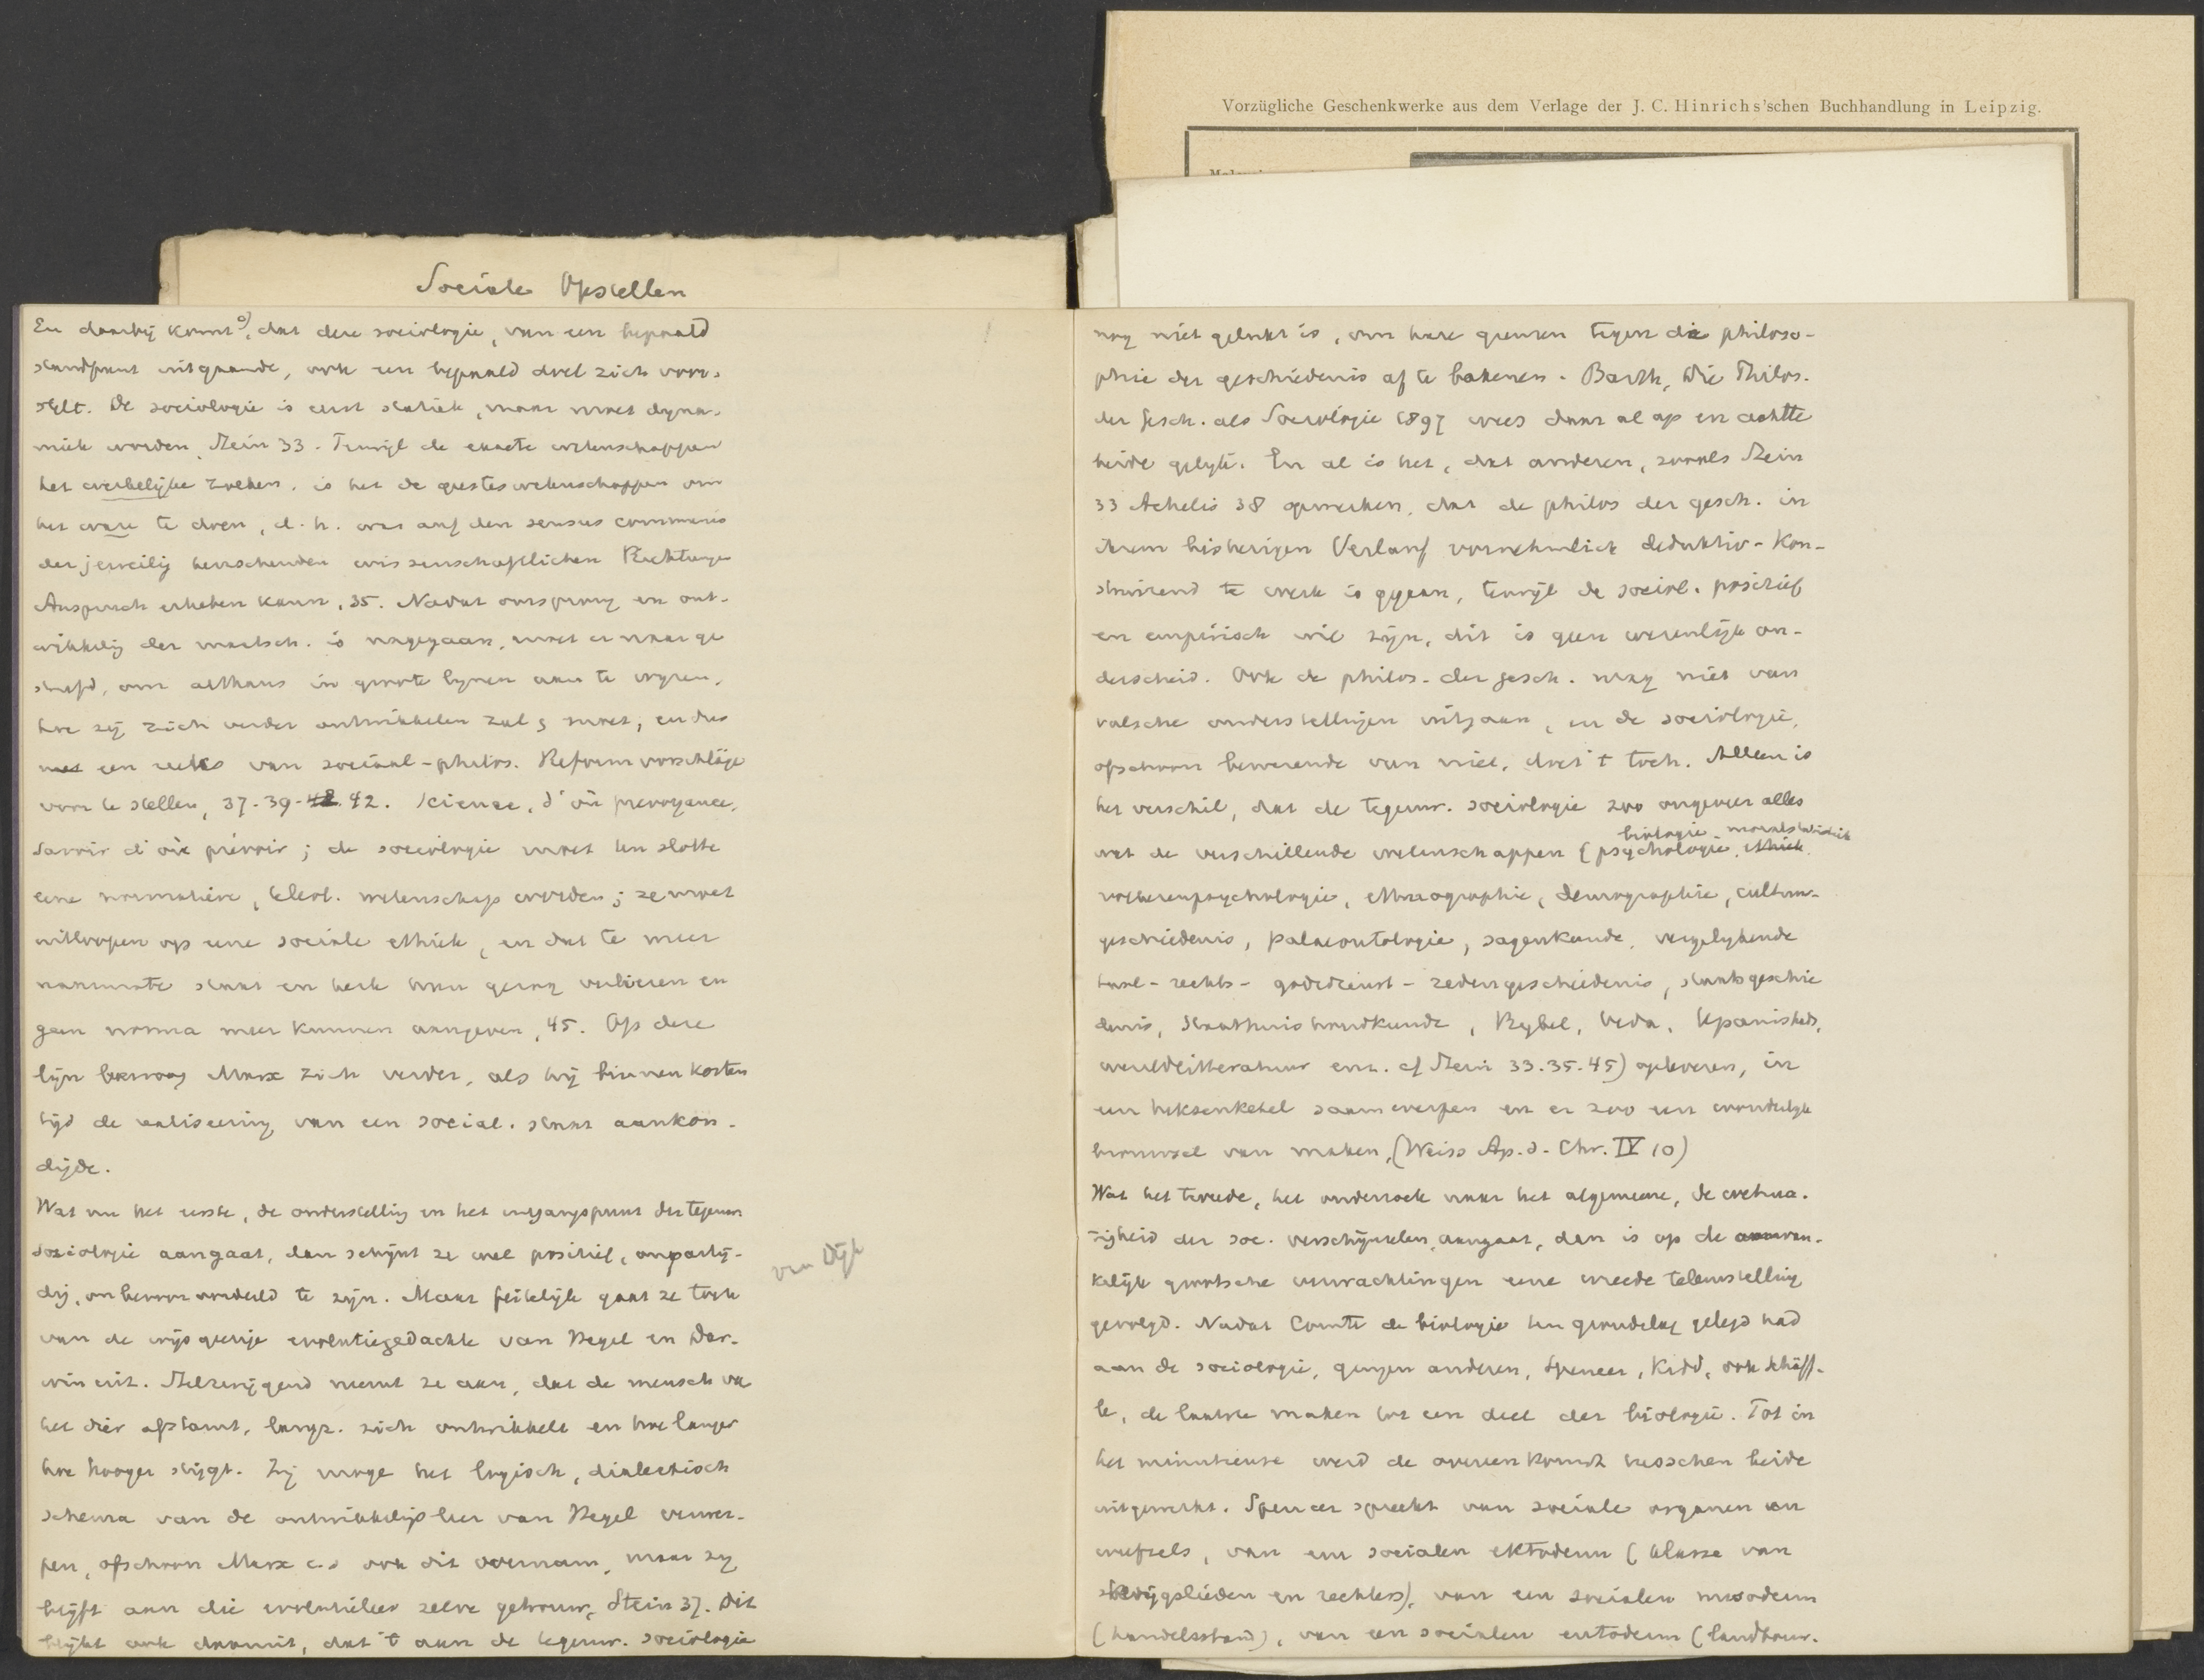 Vorzügliche Geschenkwerke aus dem Verlage der J. C. Hinrichs'schen Buchhandlung in Leipzig.
Sociale Opstellen
En daarbij komt, dat deze sociologie, van een bepaald
standpunt uitgaande, ook een bepaald doel zich voor-
stelt. De sociologie is eerst statiek, maar moet dyna-
miek worden, Stein 33. Terwijl de exacte wetenschappen
het werkelijke zoeken, is het de geesteswetenschappen om
het ware te doen, d. h. was auf den sensus communis
der jeweilig herrschenden wissenschaftlichen Richtungen
Anspruch erheben kann, 35. Nadat oorsprong en ont-
wikkelig der maatsch. is nagegaan, moet er naar ge
streefd, om althans in groote lynen aan te wyzen,
hoe zij zich verder ontwikkelen zal & moet, en dus
een reeks van sociaal-philos. Reformvorschläge
voor te stellen, 37-39-42. Science, d'où prevoyance,
Savoir d'où prévoir; de sociologie moet ten slotte
eene normatieve, teleol. wetenschap worden; ze moet
uitloopen op eene sociale ethiek, en dat te meer
naarmate staat en kerk hun gezag verliezen en
geen norma meer kunnen aangeven, 45. Op deze
lijn bewoog Marx zich verder, als hij binnen korten
tijd de realiseering van een social. staat aankon-
digde.
Wat nu het eerste, de onderstelling en het uitgangspunt der tegenw.
sociologie aangaat, dan schijnt ze wel positief, onpartij-
dig, onbevooroordeeld te zijn. Maar feitelijk gaat ze toch
van de wijsgeerige evolutiegedachte van Hegel en Dar-
win uit. Stilzwijgend neemt ze aan, dat de mensch van
het dier afstamt, langz. zich ontwikkelt en hoe langer
hoe hooger stijgt. Zij moge het logisch, dialectisch
schema van de ontwikkeligsleer van Hegel verwer-
pen, ofschoon Marx c.s. ook dit overnam, maar zij
blijft aan die evolutieleer zelve getrouw, Stein 37. Dit
blijkt ook daaruit, dat 't aan de tegenw. sociologie
van Dijk
nog niet gelukt is, om hare grenzen tegen die philoso-
phie der geschiedenis af te bakenen. Barth, Die Philos.
der Gesch. als Sociologie 1897 wees daar al op en achtte
beide gelijk. En al is het, dat anderen, zooals Stein
33 Achelis 38 opmerken, dat de philos der gesch. in
ihrem bisherigen Verlauf vornehmlich deduktiv-kon-
struirend te werk is gegaan, terwijl de sociol. positief
en empirisch wil zijn, dit is geen wezenlijk on-
derscheid. Ook de philos. der gesch. mag niet van
valsche onderstellingen uitgaan, en de sociologie,
ofschoon bewerende van niet, doet 't toch. Alleen is
het verschil, dat de tegenw. sociologie zoo ongeveer alles
biologie. moraalstatistiek
wat de verschillende wetenschappen (psychologie, ethiek,
volkerenpsychologie, ethnographie, demographie, cultuur-
geschiedenis, palaeontologie, sagenkunde, vergelykende
taal- rechts- godsdienst- zedengeschiedenis, staatsgeschie
denis, staathuishoudkunde, Bybel, Veda, Upanishads,
wereldlitteratuur enz. cf Stein 33.35.45) opleveren, in
een heksenketel saamwerpen en er zoo een wonderlyk
brouwsel van maken, (Weiss Ap. d. Chr. IV 10)
Wat het tweede, het onderzoek naar het algemeene, de wetma-
tigheid der soc. verschijnselen, aangaat, dan is op de aanvan-
kelijk grootsche verwachtingen eene wreede teleurstelling
gevolgd. Nadat Comte de biologie ten grondslag gelegd had
aan de sociologie, gingen anderen, Spencer, Kidd, ook Schäff-
le, de laatste maken tot een deel der biologie. Tot in
het minutieuse werd de overeenkomst tusschen beide
uitgewerkt. Spencer spreekt van sociale organen en
weefsels, van een socialen ektoderm (klasse van
krijgslieden en rechters), van een socialen mesoderm
(handelsstand), van een socialen entoderm (landbouw-